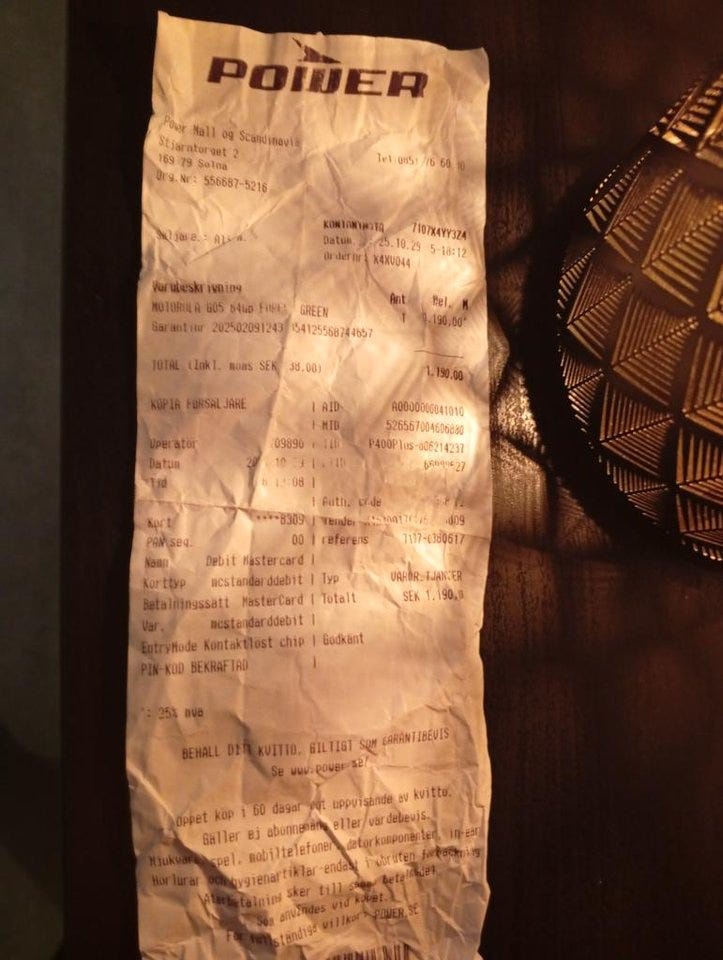 POWER
Power Mall og Scandinavia
Stjärntorget 2
169 79 Solna
Tel:
Org.Nr: 556687-5216
KONTANTNOTA 7107X4YY3Z4
Säljare.:
Datum. : 25.10.29 5-18:12
Ordernr: X4XV044
Varubeskrivning Ant Bel. M
MOTOROLA G05 64GB GREEN 1 1.190,00*
Garantinr
TOTAL (Inkl. moms SEK 38,00) 1.190,00
KOPIA FÖRSÄLJARE | AID A0000000041010
| MID 526567004606880
Operatör 09890 P400Plus-806214237
Datum
Tid
| Auth. code
Kort ****8309 |
PAN seq. 00 | referens
Namn Debit Mastercard |
Korttyp mcstandarddebit | Typ VAROR/TJANSTER
Betalningssätt MasterCard | Totalt SEK 1.190,0
Var. mcstandarddebit |
EntryMode Kontaktlöst chip | Godkänt
PIN-KOD BEKRÄFTAD |
*: 25% mva
BEHÅLL DITT KVITTO, GILTIGT SOM GARANTIBEVIS
Se www.power.se/
Öppet köp i 60 dagar mot uppvisande av kvitto.
Gäller ej abonnemang eller värdebevis.
Mjukvara, spel, mobiltelefoner, datorkomponenter, in-ear
hörlurar och hygienartiklar endast i obruten förpackning
Återbetalning sker till samma betalmedel
som användes vid köpet.
För fullständiga villkor: POWER.SE